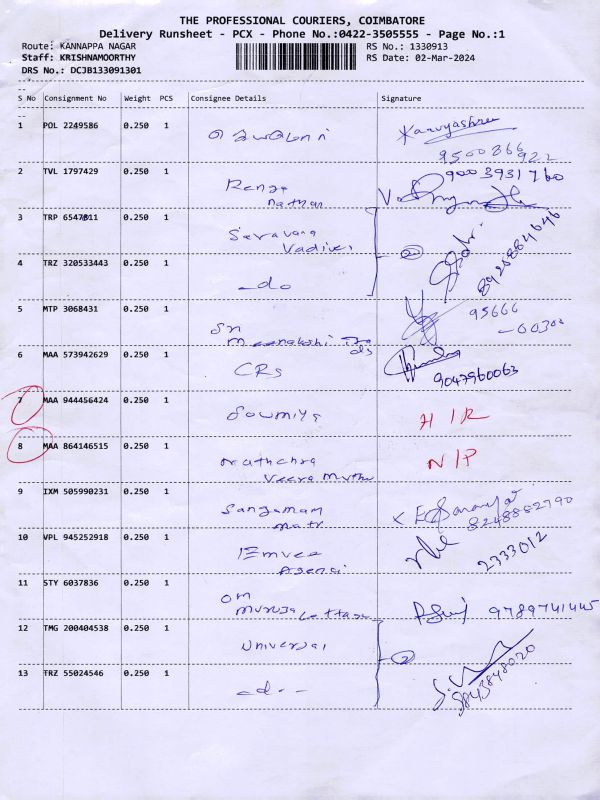 THE PROFESSIONAL COURIERS, COIMBATORE
Delivery Runsheet - PCX - Phone No.:0422-3505555 - Page No.:1
Route: KANNAPPA NAGAR RS No.: 1330913
Staff: KRISHNAMOORTHY RS Date: 02-Mar-2024
DRS No.: DCJB133091301
S No Consignment No Weight PCS Consignee Details Signature
1 POL 2249586 0.250 1 Kavyashree
9500366922
2 TVL 1797429 0.250 1 Renga 9003931760
nathan
3 TRP 6547811 0.250 1 Saravana
Vadivel
4 TRZ 320533443 0.250 1 -do 2 8926884646
5 MTP 3068431 0.250 1 Sri 95666
meenakshi -00302
6 MAA 573942629 0.250 1 CRS
9047960063
7 MAA 944456424 0.250 1 Sowmiya
8 MAA 864146515 0.250 1 N/P
Veera muthu
9 IXM 505990231 0.250 1 Sangamam
8248882790
10 VPL 945252918 0.250 1 Emvee 2333012
11 STY 6037836 0.250 1 om 9789741445
muruga
12 TMG 200404538 0.250 1 Universal 2
13 TRZ 55024546 0.250 1 -do- 9843848020